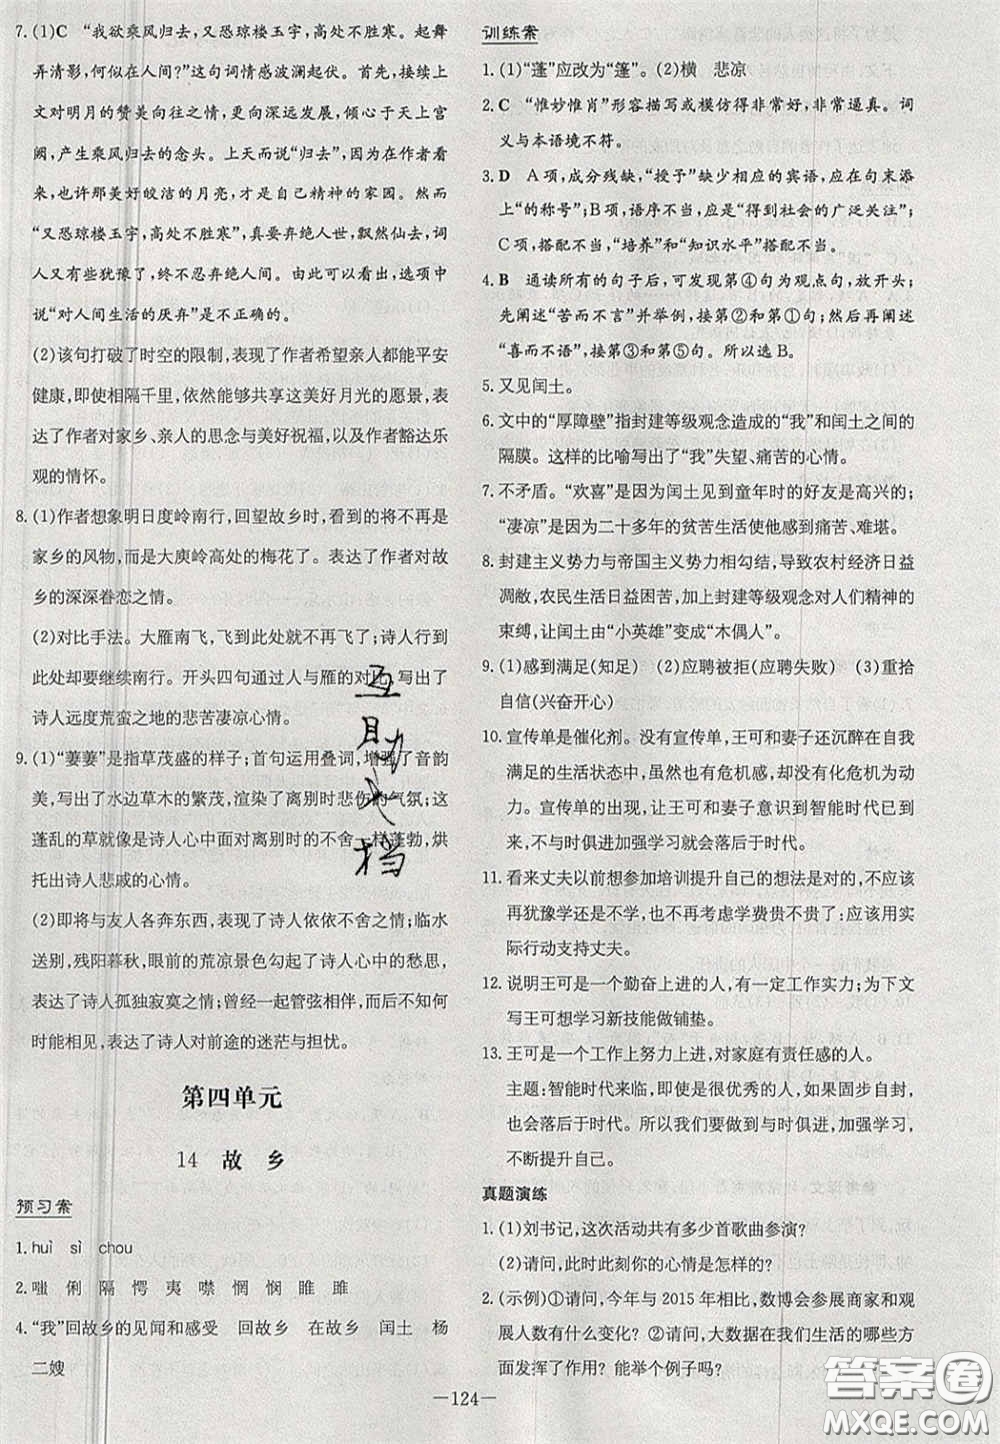 7. (1)C “我欲乘风归去,又恐琼楼玉宇,高处不胜寒。起舞
弄清影,何似在人间?”这句词情感波澜起伏。首先,接续上
文对明月的赞美向往之情,更向深远发展,有了飞天上宫
阙,产生乘风归去的念头。上天而说“归去”,因为在作者看
来,也许那美好皎洁的月亮,才是自己精神的家园。然而,
“又恐琼楼玉宇,高处不胜寒”,真要弃绝人世,飘然仙去,词
人又有些犹豫了,终不忍弃绝人间。由此可以看出,选项中
说“对人间生活的厌弃”是不正确的。
(2)该句打破了时空的限制,表现了作者希望亲人都能平安
健康,即使相隔千里,依然能够共享这美好月光的愿景,表
达了作者对家乡、亲人的思念与美好祝福,以及作者豁达乐
观的情怀。
8. (1)作者想象明日度岭南行,回望故乡时,看到的将不再是
家乡的风物,而是大庾岭高处的梅花了。表达了作者对故
乡的深深眷恋之情。
(2)对比手法。大雁南飞,飞到此处就不再飞了;诗人行到
此处却要继续南行。开头四句通过人与雁的对比,写出了
诗人远度荒蛮之地的悲苦凄凉心情。
9. (1)“萋萋”是指草茂盛的样子;首句运用叠词,增强了音韵
美,写出了水边草木的繁茂,渲染了离别时悲伤的气氛;这
蓬乱的草就像是诗人心中面对离别时的不舍一样蓬勃,烘
托出诗人悲戚的心情。
(2)即将与友人各奔东西,表现了诗人依依不舍之情;临水
送别,残阳暮秋,眼前的荒凉景色勾起了诗人心中的愁思,
表达了诗人孤独寂寞之情;曾经一起管弦相伴,而后不知何
时能相见,表达了诗人对前途的迷茫与担忧。
第四单元
14 故 乡
预习案
1. huì sì chou
2. 嗤 俐 隔 愕 夷 噤 惘 悯 雎 雎
4. “我”回故乡的见闻和感受 回故乡 在故乡 闰土 杨
二嫂
训练案
1. (1)“蓬”应改为“篷”。(2)横 悲凉
2. C “惟妙惟肖”形容描写或模仿得非常好,非常逼真。词
义与本语境不符。
3. D A项,成分残缺,“授予”缺少相应的宾语,应在句末添
上“的称号”;B项,语序不当,应是“得到社会的广泛关注”;
C项,搭配不当,“培养”和“知识水平”搭配不当。
4. B 通读所有的句子后,可发现第④句为观点句,放开头;
先阐述“苦而不言”并举例,接第②和第①句;然后再阐述
“喜而不语”,接第③和第⑤句。所以选B。
5. 又见闰土。
6. 文中的“厚障壁”指封建等级观念造成的“我”和闰土之间的
隔膜。这样的比喻写出了“我”失望、痛苦的心情。
7. 不矛盾。“欢喜”是因为闰土见到童年时的好友是高兴的。
“凄凉”是因为二十多年的贫苦生活使他感到痛苦、难堪。
8. 封建主义势力与帝国主义势力相勾结,导致农村经济日益
凋敝,农民生活日益困苦,加上封建等级观念对人们精神的
束缚,让闰土由“小英雄”变成“木偶人”。
9. (1)感到满足(知足) (2)应聘被拒(应聘失败) (3)重拾
自信(兴奋开心)
10. 宣传单是催化剂。没有宣传单,王可和妻子还沉醉在自我
满足的生活状态中,虽然有危机感,却没有化危机为动
力。宣传单的出现,让王可和妻子意识到智能时代已到
来,不与时俱进加强学习就会落后于时代。
11. 看来丈夫以前想参加培训提升自己的想法是对的,不应该
再犹豫学还是不学,也不再考虑学费贵不贵了;应该用实
际行动支持丈夫。
12. 说明王可是一个勤奋上进的人,有一定工作实力;为下文
写王可想学习新技能做铺垫。
13. 王可是一个工作上努力上进,对家庭有责任感的人。
主题:智能时代来临,即使是很优秀的人,如果固步自封,
也会落后于时代。所以我们要做到与时俱进,加强学习,
不断提升自己。
真题演练
1. (1)刘书记,这次活动共有多少首歌曲参演?
(2)请问,此时此刻你的心情是怎样的?
2. (示例)①请问,今年与2015年相比,数博会参展商家和观
展人数有什么变化? ②请问,大数据在我们生活的哪些方
面发挥了作用? 能举个例子吗?
—124—
互助文档
答案圈
MXQE.COM